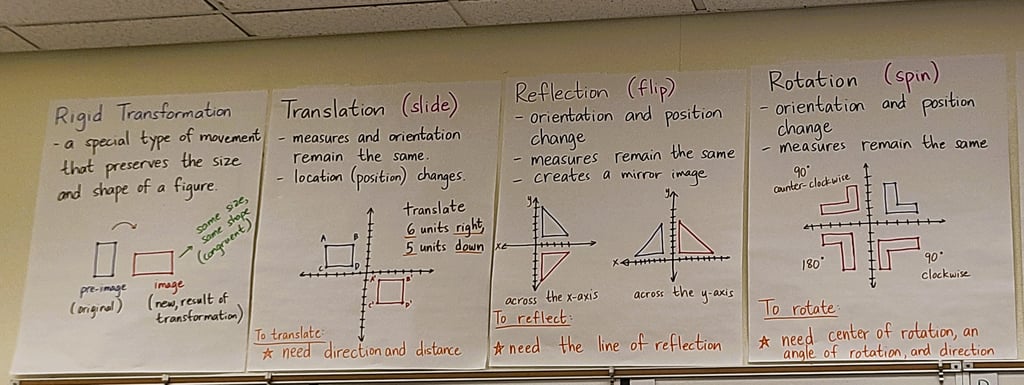 Rigid Transformation
- a special type of movement
that preserves the size
and shape of a figure.
same size,
same shape
(congruent)
pre-image
(original)
image
(new, result of
transformation)
Translation (slide)
- measures and orientation
remain the same.
- location (position) changes.
translate
6 units right,
5 units down
A
B
C
D
A'
B'
C'
D'
To translate:
☆ need direction and distance
Reflection (flip)
- orientation and position
change
- measures remain the same
- creates a mirror image
y
x
across the x-axis
y
x
across the y-axis
To reflect:
☆ need the line of reflection
Rotation (spin)
- orientation and position
change
- measures remain the same
90°
counter-clockwise
180°
90°
clockwise
To rotate:
☆ need center of rotation, an
angle of rotation, and direction